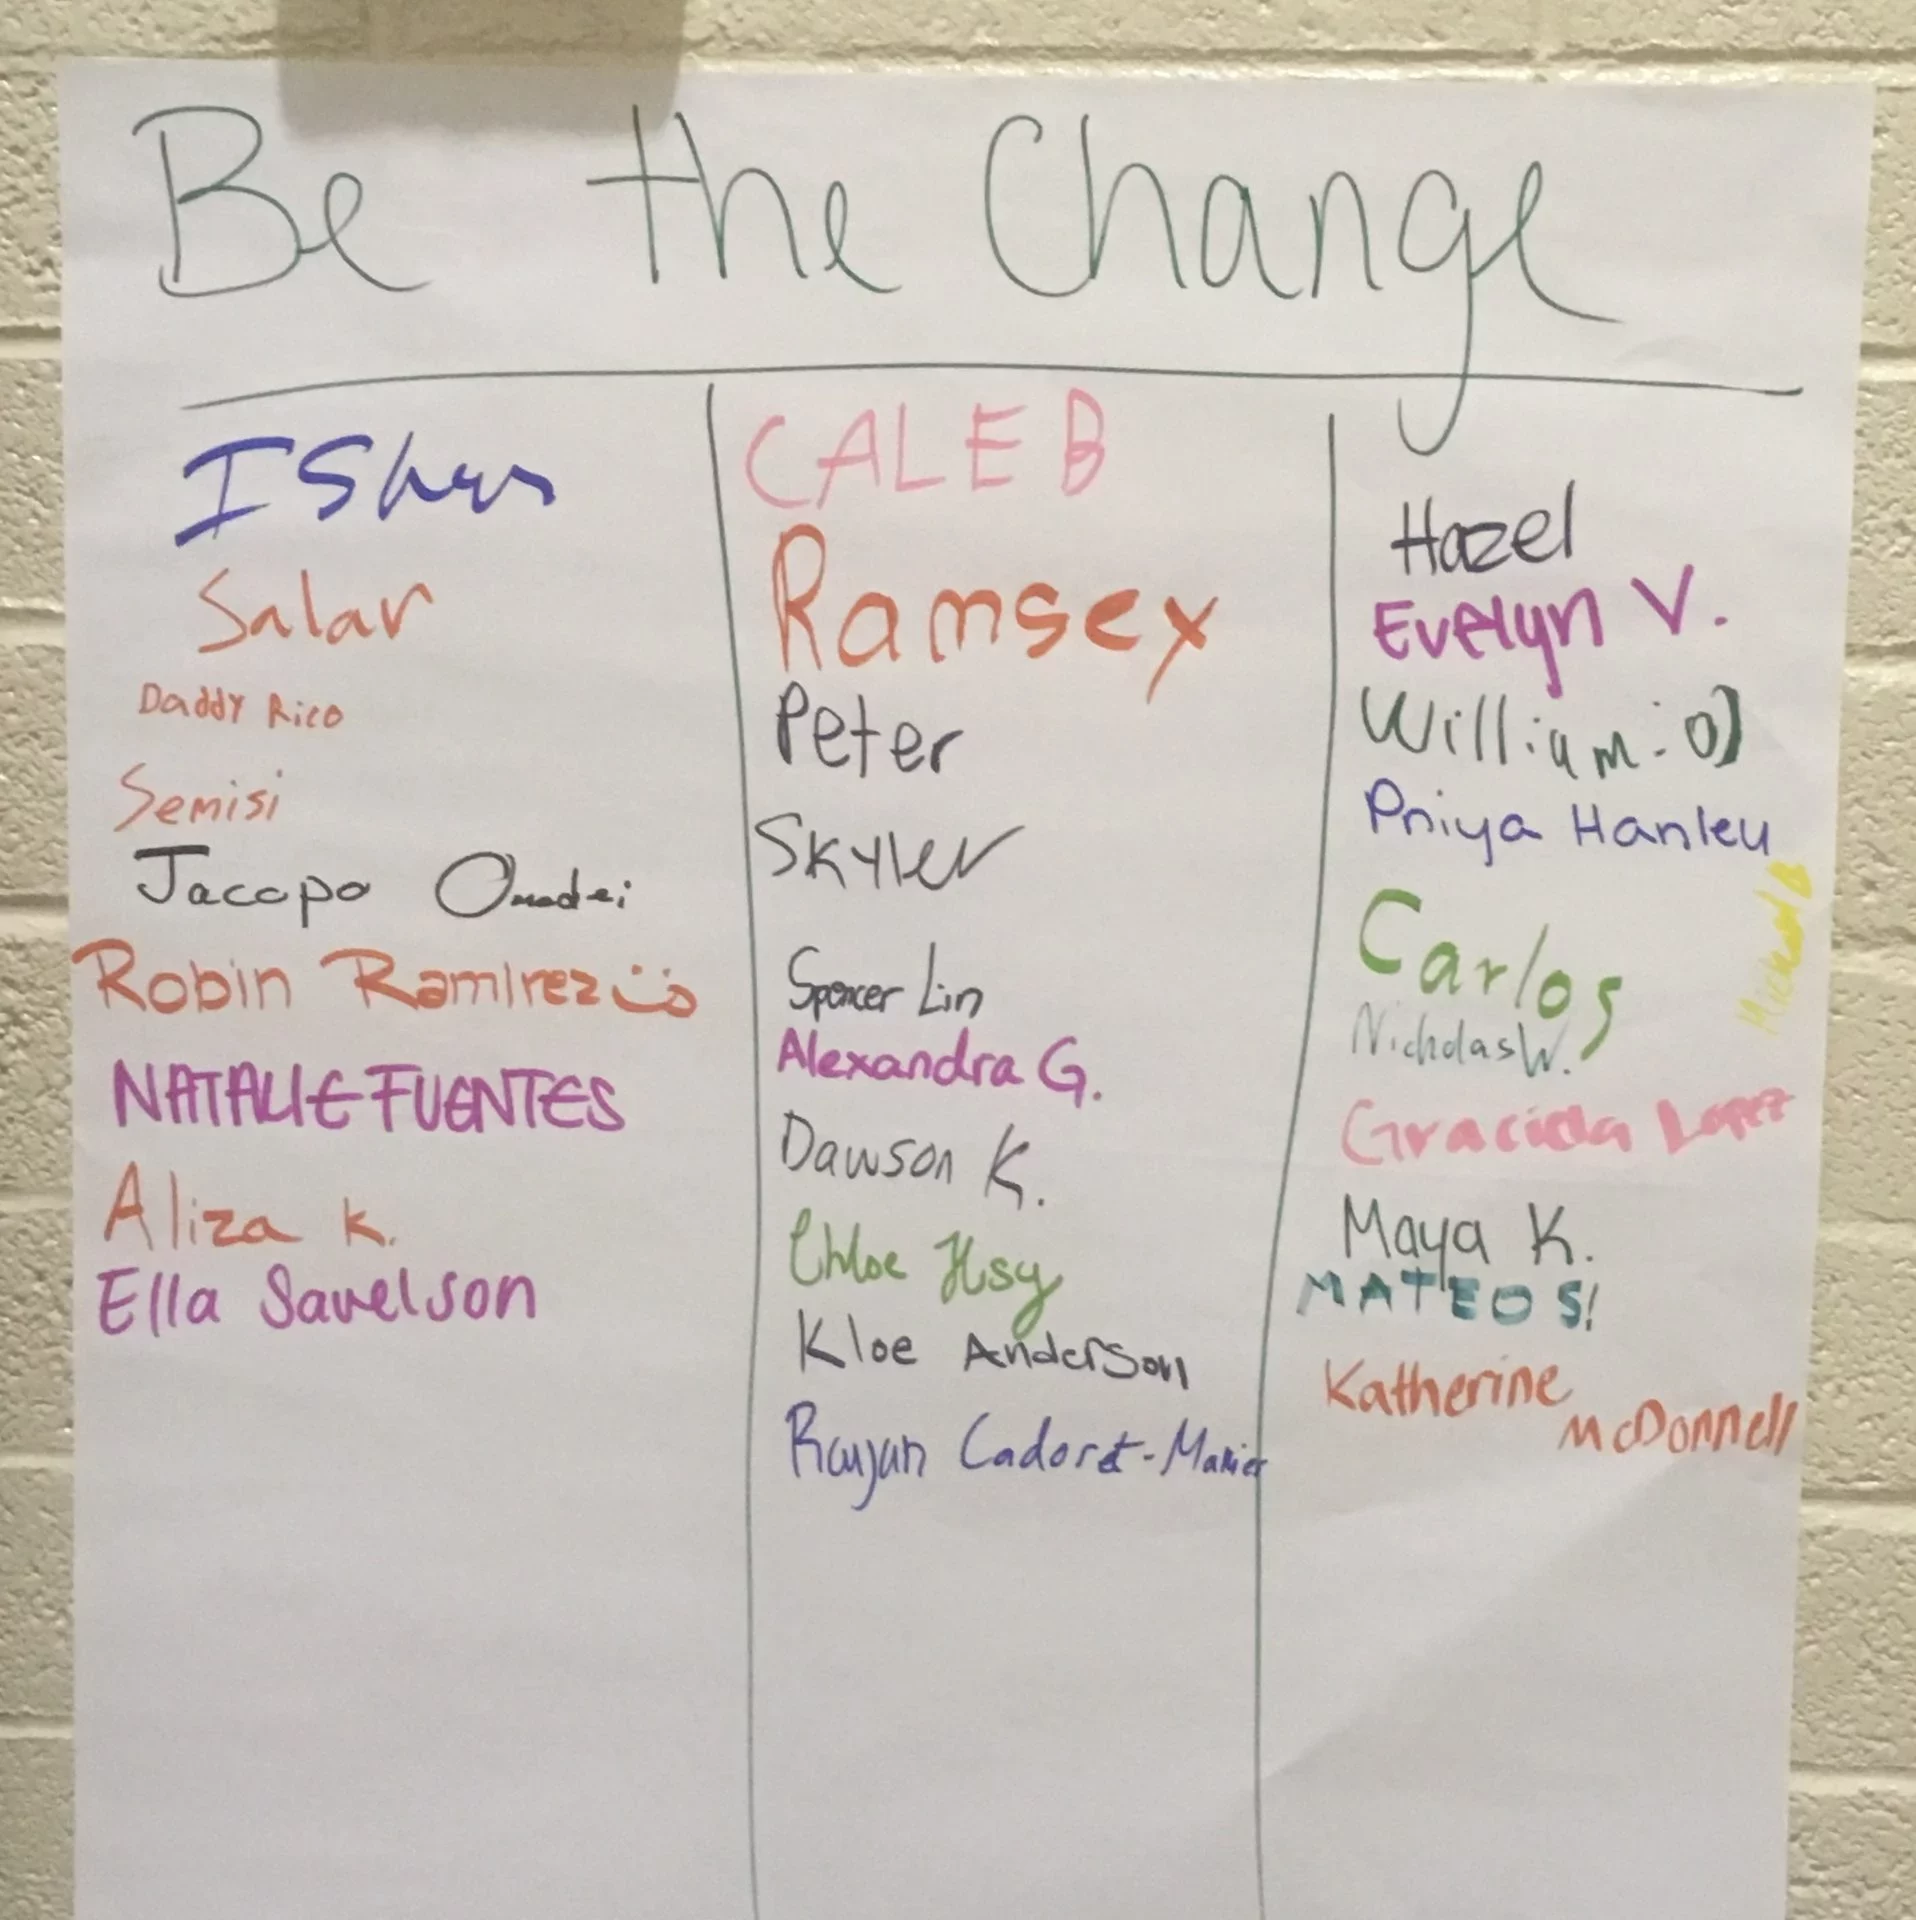 Be the Change
Salar
Daddy Rico
Semisi
Jacopo
Robin Ramirez
NATALIE FUENTES
Aliza K.
Ella Savelson
CALEB
Ramsey
Peter
Skyler
Spencer Lin
Alexandra G.
Dawson K.
Chloe Hsy
Kloe Anderson
Rayan Cadoret-
Hazel
Evelyn V.
William :o)
Priya Hanley
Carlos
Nicholas W.
Graciela Lopez
Maya K.
MATEOS!
Katherine
McDonnell